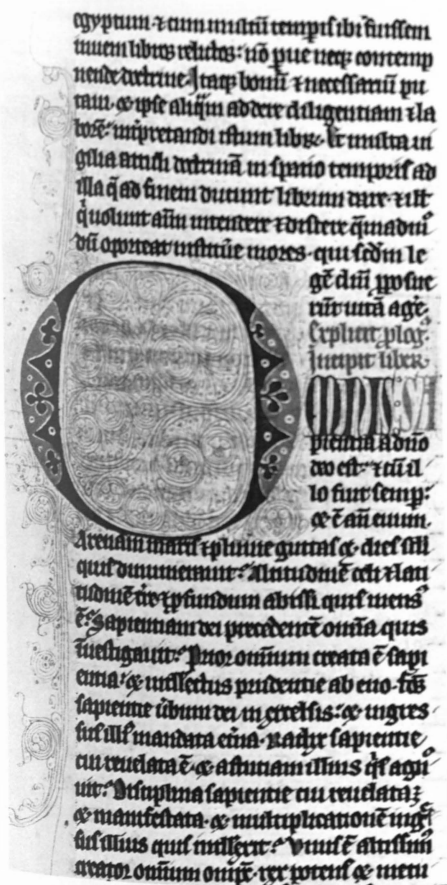 egyptum · ⁊ cum multū temp̄is ibi fuissem
inueni libros relictos: nō p̄ue neq; contemp
nende doctrine. Itaq; bonū ⁊ necessariū pu
taui · & ipse aliq̄m addere diligentiam ⁊ la
borē · int̄pretandi istum libr̄. Et multa ui
gilia attuli doctrinā in spatio temporis ad
illa q̄ ad finem ducunt librum dare · ⁊ ill̄
q̄ uolunt aīm intendere ⁊ discere q̄madmo
dū oporteat instituē mores · qui scd̄m le
gē dn̄i p̄posue
rūt uitā agē ·
Explicit plog̅.
Incipit liber ·
OMNIS SA
pientia a dn̄o
deo est · ⁊ cū il
lo fuit semp̄ ·
& ē añ euum ·
Arenam maris ⁊ pluuie guttas & dies sc̄li
quis dinumerauit? Altitudinē celi ⁊ lati
tudinē tr̄e ⁊ p̄fundum abissi quis mens9
ē? Sapientiam dei precedentē omīa quis
īuestigauit? Prior omnium creata ē sapi
entia · & intellectus prudentie ab euo · fōs
sapientie ūbum dei in excelsis · & ingres
sus illi9 mandata et̄na · Radix sapientie
cui reuelata ē · & astutiam illius q̄s agn̄
uit? Disciplina sapientie cui reuelata ē
& manifestata · & multiplicationē inḡs
sus illius quis intellexit? Vnus ē altissim9
creator omnium omp̄s · rex potens & metu